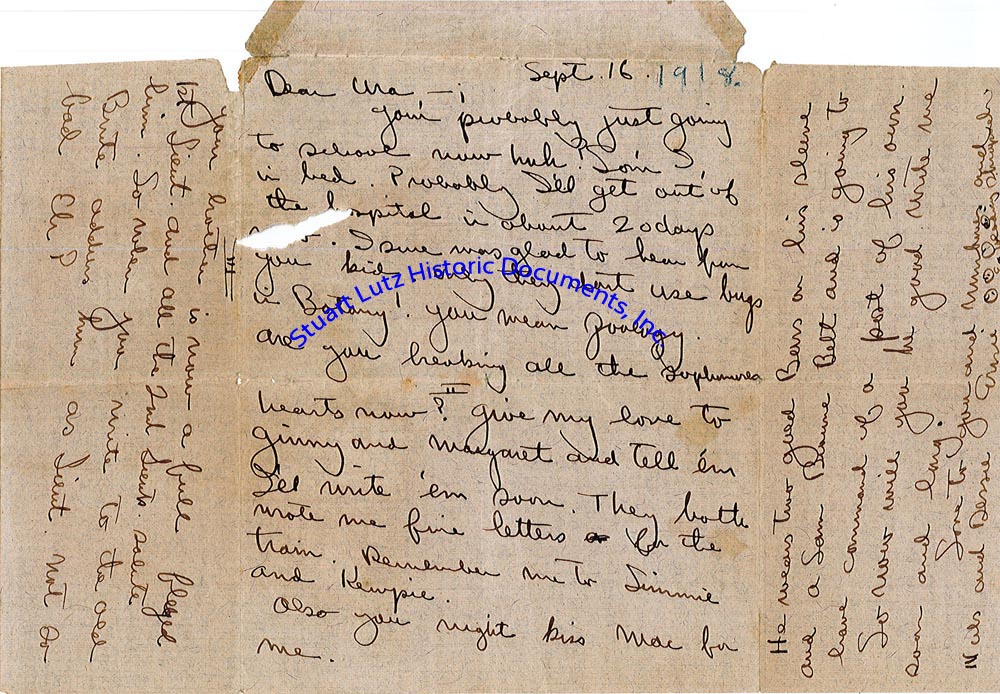 Sept. 16. 1918.
Dear Una —;
You're probably just going
to school now huh? So'm I
in bed. Probably I'll get out of
the hospital in about 20 days
I sure was glad to hear from
you kid only they don't use bugs
in Botany! You mean Zoology.
are you breaking all the Sophmores
II
hearts now? Give my love to
Ginny and Margaret and tell 'em
I'll write 'em soon. They both
wrote me fine letters for the
train. Remember me to Jimmie
and Kewpie.
Also you might kiss Mac for
me.
III
Your brother is now a full fleged
1st Lieut. and all the 2nd Lieuts. salute
him. So when you write to the old
Brute address him as Lieut. not so
bad Eh?
He wears two gold Bars on his sleeve
and a Sam Browne Belt and is going to
have command of a post of his own.
So now will you be good. Write me
soon and long.
Love to you and and
and Bessie
Stuart Lutz Historic Documents, Inc.